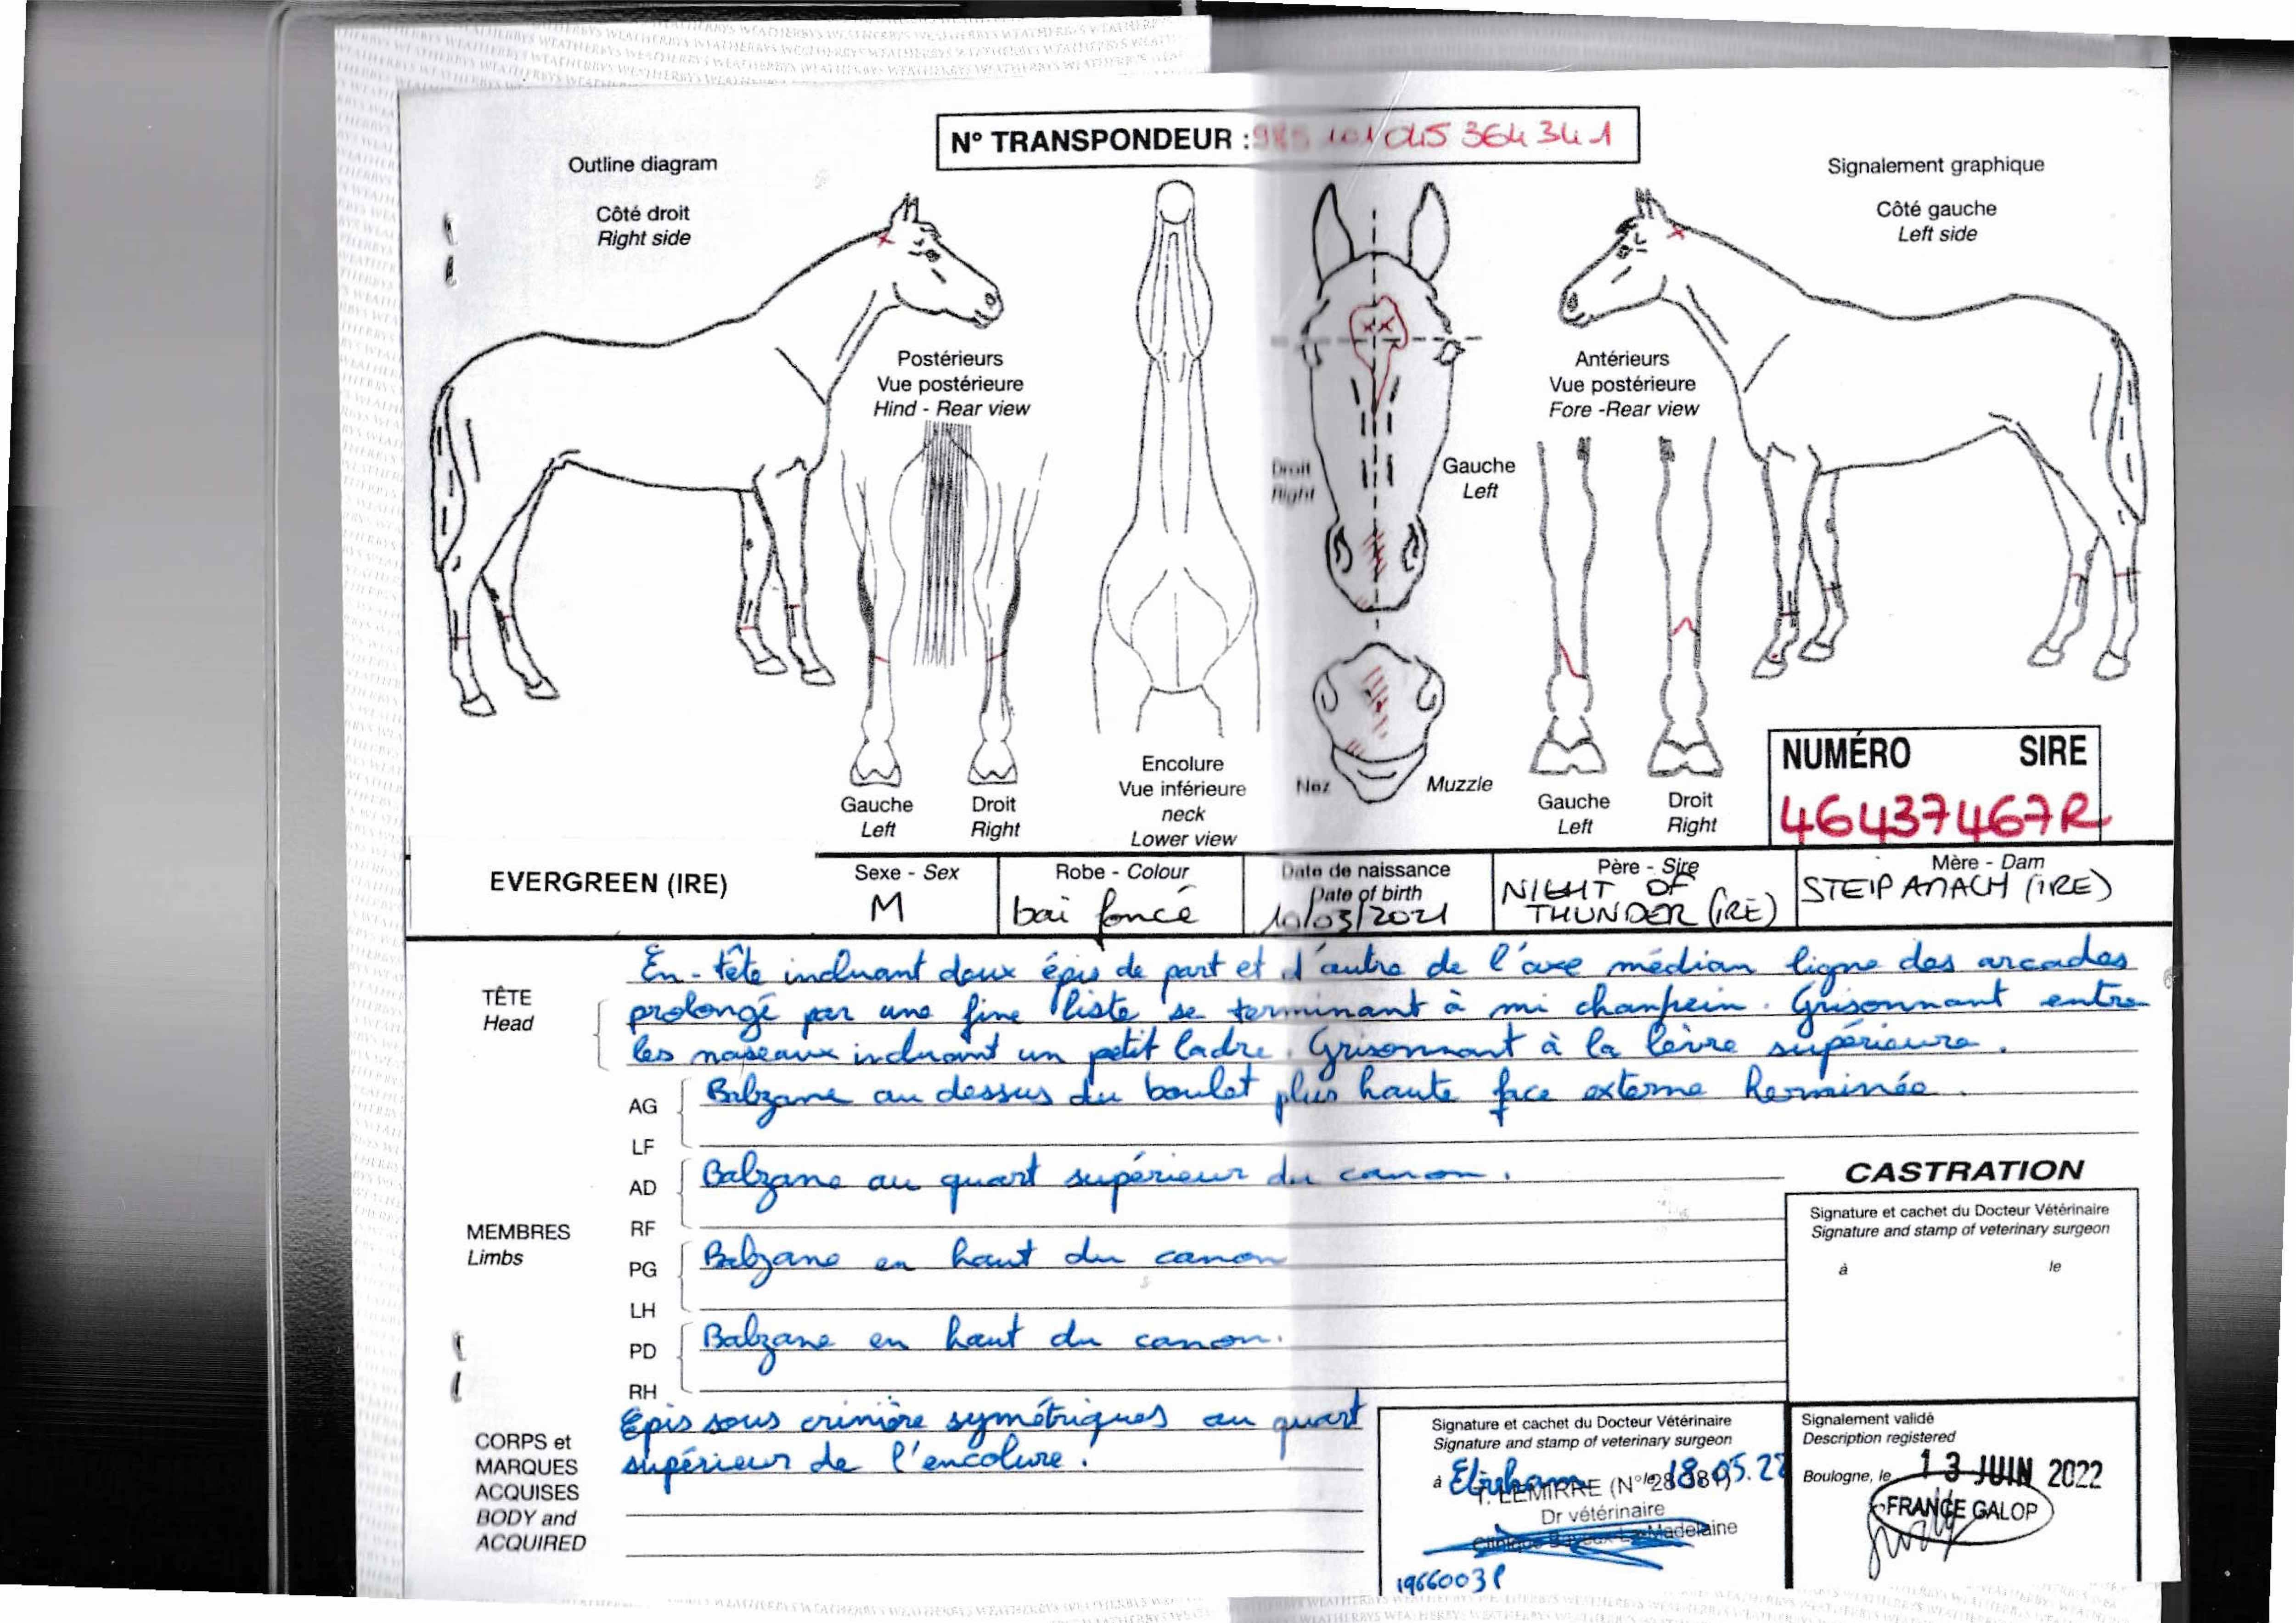 N° TRANSPONDEUR : 985 101 045 364 341
Outline diagram
Signalement graphique
Côté droit
Right side
Côté gauche
Left side
Postérieurs
Vue postérieure
Hind - Rear view
Antérieurs
Vue postérieure
Fore -Rear view
Droit
Right
Gauche
Left
Encolure
Vue inférieure
neck
Lower view
Nez
Muzzle
Gauche
Left
Droit
Right
Gauche
Left
Droit
Right
NUMÉRO SIRE
46437467R
EVERGREEN (IRE)
Sexe - Sex
M
Robe - Colour
bai foncé
Date de naissance
Date of birth
10/03/2021
Père - Sire
NIGHT OF
THUNDER (IRE)
Mère - Dam
STEIP AMACH (IRE)
TÊTE
Head
En-tête incluant deux épis de part et d'autre de l'axe médian ligne des arcades
prolongé par une fine liste se terminant à mi chanfrein. Grisonnant entre
les naseaux incluant un petit ladre. Grisonnant à la lèvre supérieure.
MEMBRES
Limbs
AG
LF
Balzane au dessus du boulet plus haute face externe herminée.
AD
RF
Balzane au quart supérieur du canon.
PG
LH
Balzane en haut du canon
PD
RH
Balzane en haut du canon.
CORPS et
MARQUES
ACQUISES
BODY and
ACQUIRED
Epis sous crinière symétriques au quart
supérieur de l'encolure.
CASTRATION
Signature et cachet du Docteur Vétérinaire
Signature and stamp of veterinary surgeon
à le
Signature et cachet du Docteur Vétérinaire
Signature and stamp of veterinary surgeon
à Etreham le 18.05.22
T. LEMIRRE (N° 28381)
Dr vétérinaire
Clinique Bayeux La Madelaine
1966003P
Signalement validé
Description registered
Boulogne, le 13 JUIN 2022
FRANCE GALOP